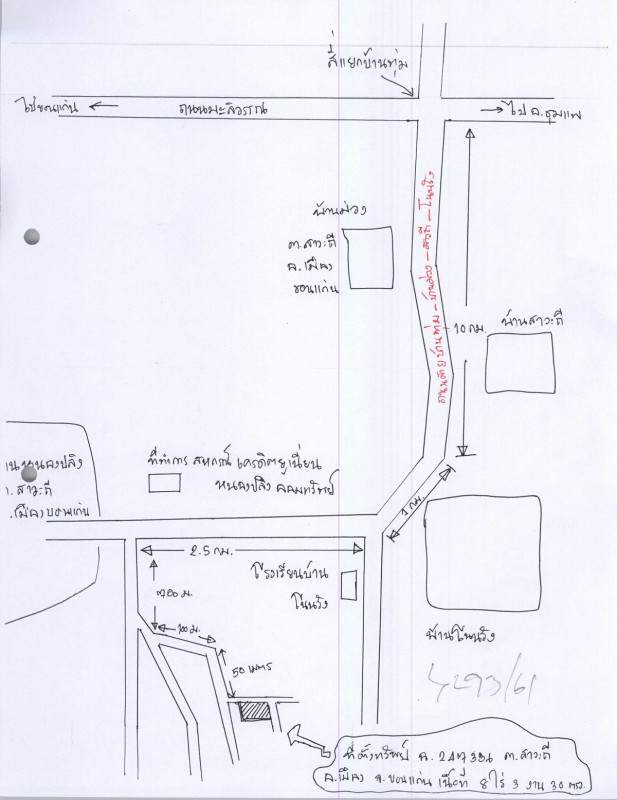 สี่แยกบ้านทุ่ม
ไปขอนแก่น
ถนนมะลิวรรณ
ไป อ.ชุมแพ
บ้านม่วง
ต.สาวะถี
อ.เมือง
ขอนแก่น
ถนนสายบ้านทุ่ม - บ้านม่วง - สาวะถี - โนนรัง
10 กม.
บ้านสาวะถี
หนองปลิง
ต.สาวะถี
อ.เมืองขอนแก่น
ที่ทำการ สหกรณ์ เครดิตยูเนี่ยน
หนองปลิง ออมทรัพย์
1 กม.
2.5 กม.
โรงเรียนบ้าน
โนนรัง
100 ม.
50 เมตร
บ้านโนนรัง
4293/61
ที่ตั้งทรัพย์ ต.สาวะถี
อ.เมือง จ.ขอนแก่น เนื้อที่ 8 ไร่ 3 งาน 30 ตรว.